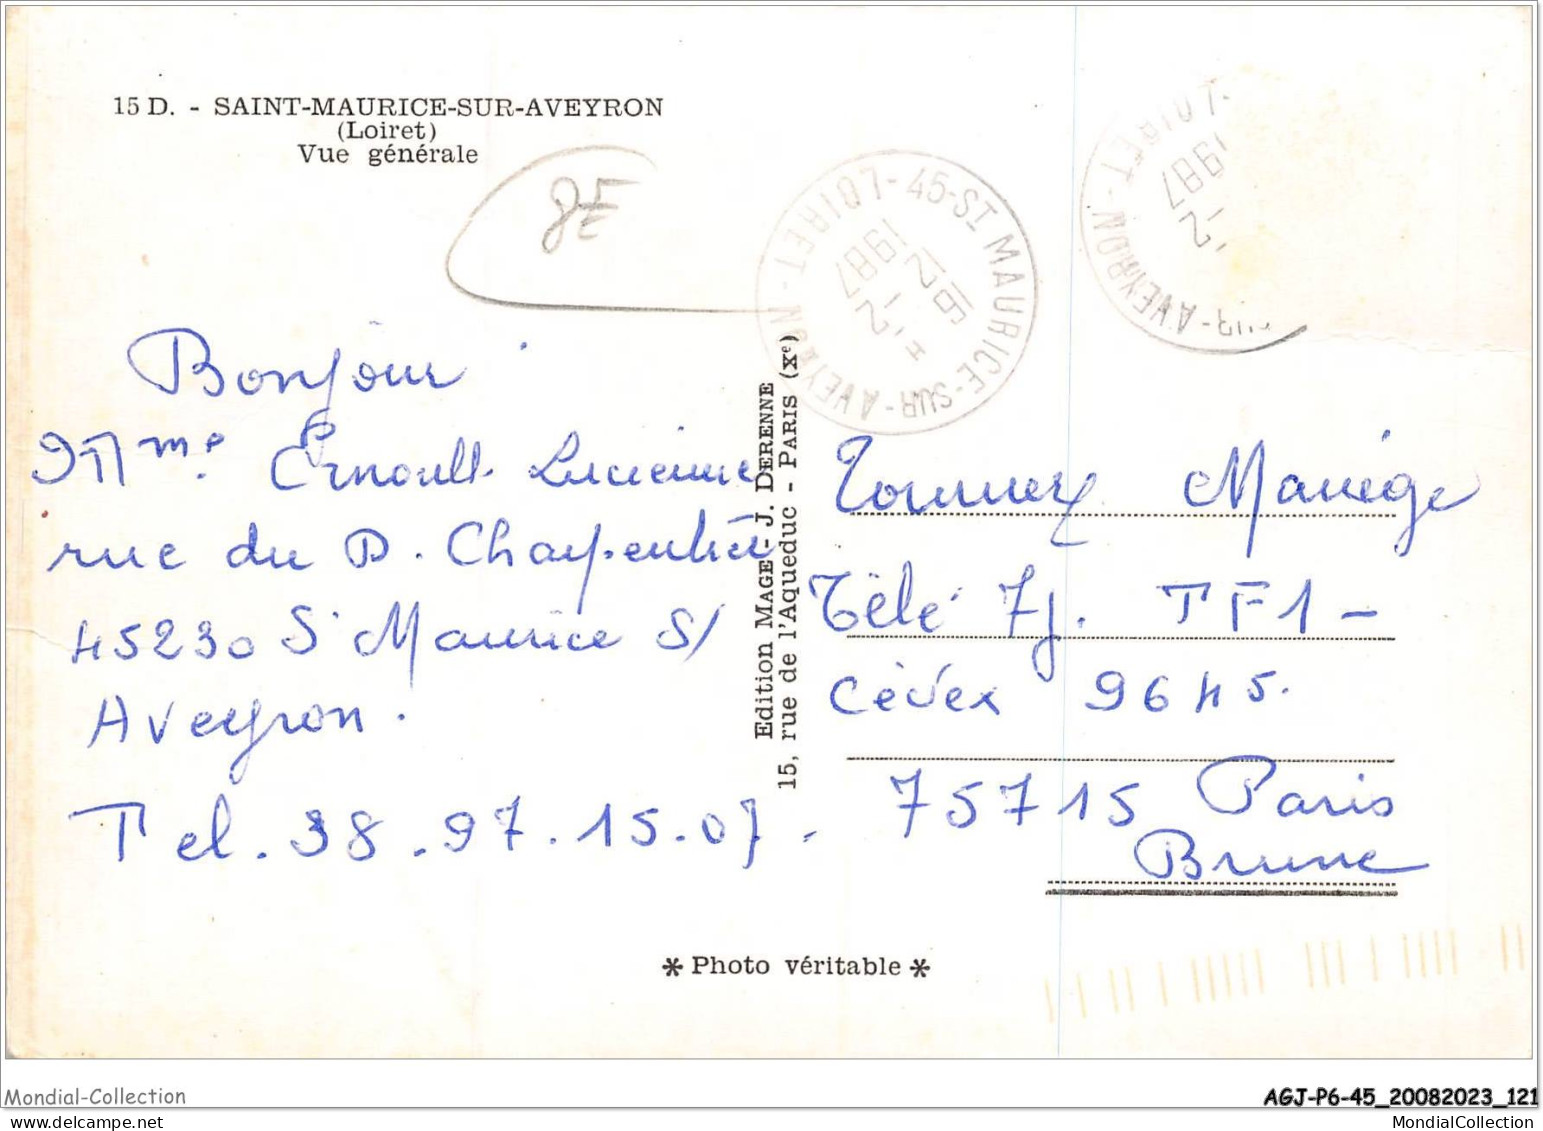 15 D. - SAINT-MAURICE-SUR-AVEYRON
(Loiret)
Vue générale
8E
45-ST MAURICE-SUR-AVEYRON - LOIRET -
16H
-2
1987
UR-AVEYRON - LOIRET
-2
1987
Bonjour
Mme Ernoult Lucienne
rue du D. Charpentier
45230 St Maurice S/
Aveyron.
Tel. 38.97.15.07.
Edition MAGE - J. DERENNE
15, rue de l'Aqueduc - PARIS (Xe)
Tournez Manège
Télé 7j. TF1 -
Cédex 9645.
75715 Paris
Brune
* Photo véritable *
Mondial-Collection
AGJ-P6-45_20082023_121
MondialCollection